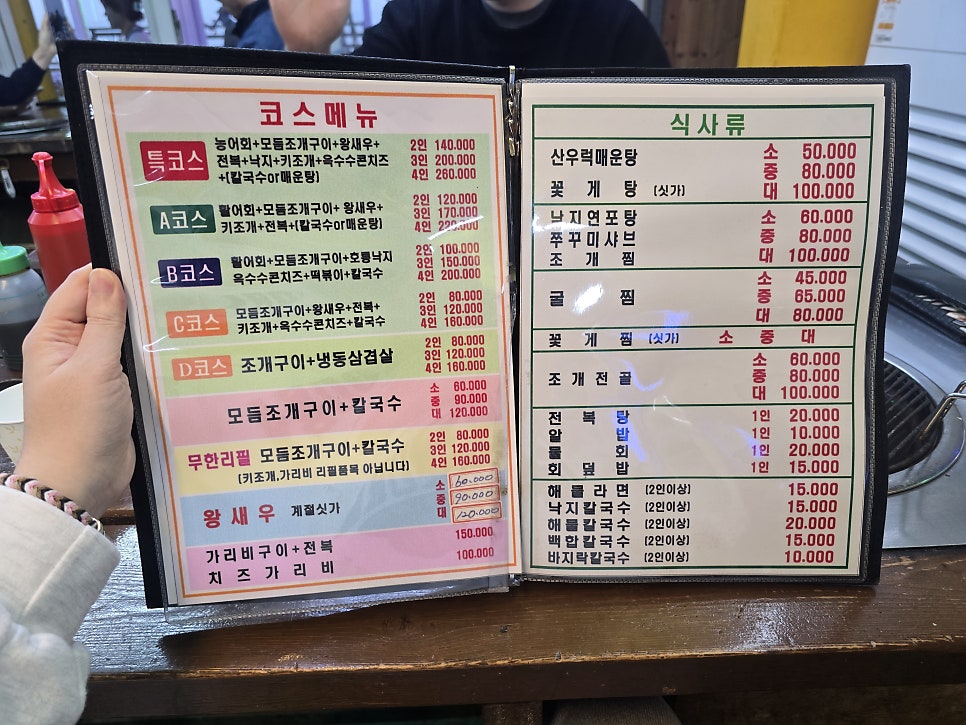 코스메뉴
특코스
농어회+모듬조개구이+왕새우+
전복+낙지+키조개+옥수수콘치즈
+(칼국수or매운탕)
2인 140.000
3인 200.000
4인 260.000
A코스
활어회+모듬조개구이+ 왕새우+
키조개+전복+(칼국수or매운탕)
2인 120.000
3인 170.000
4인 220.000
B코스
활어회+모듬조개구이+호롱낙지
옥수수콘치즈+떡볶이+칼국수
2인 100.000
3인 150.000
4인 200.000
C코스
모듬조개구이+왕새우+전복+
키조개+옥수수콘치즈+칼국수
2인 80.000
3인 120.000
4인 160.000
D코스 조개구이+냉동삼겹살
2인 80.000
3인 120.000
4인 160.000
모듬조개구이+칼국수
소 60.000
중 90.000
대 120.000
무한리필 모듬조개구이+칼국수
(키조개,가리비 리필품목 아닙니다)
2인 80.000
3인 120.000
4인 160.000
왕새우 계절싯가
소 60.000
중 90.000
대 120.000
가리비구이+전복 150.000
치즈가리비 100.000
식사류
산우럭매운탕
꽃게탕 (싯가)
소 50.000
중 80.000
대 100.000
낙지연포탕 소 60.000
쭈꾸미샤브 중 80.000
조개찜 대 100.000
굴찜
소 45.000
중 65.000
대 80.000
꽃게찜 (싯가) 소 중 대
조개전골
소 60.000
중 80.000
대 100.000
전복탕 1인 20.000
알밥 1인 10.000
물회 1인 20.000
회덮밥 1인 15.000
해물라면 (2인이상) 15.000
낙지칼국수 (2인이상) 15.000
해물칼국수 (2인이상) 20.000
백합칼국수 (2인이상) 15.000
바지락칼국수 (2인이상) 10.000